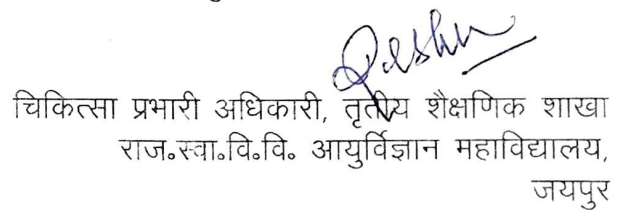 चिकित्सा प्रभारी अधिकारी, तृतीय शैक्षणिक शाखा
राज॰स्वा॰वि॰वि॰ आयुर्विज्ञान महाविद्यालय,
जयपुर